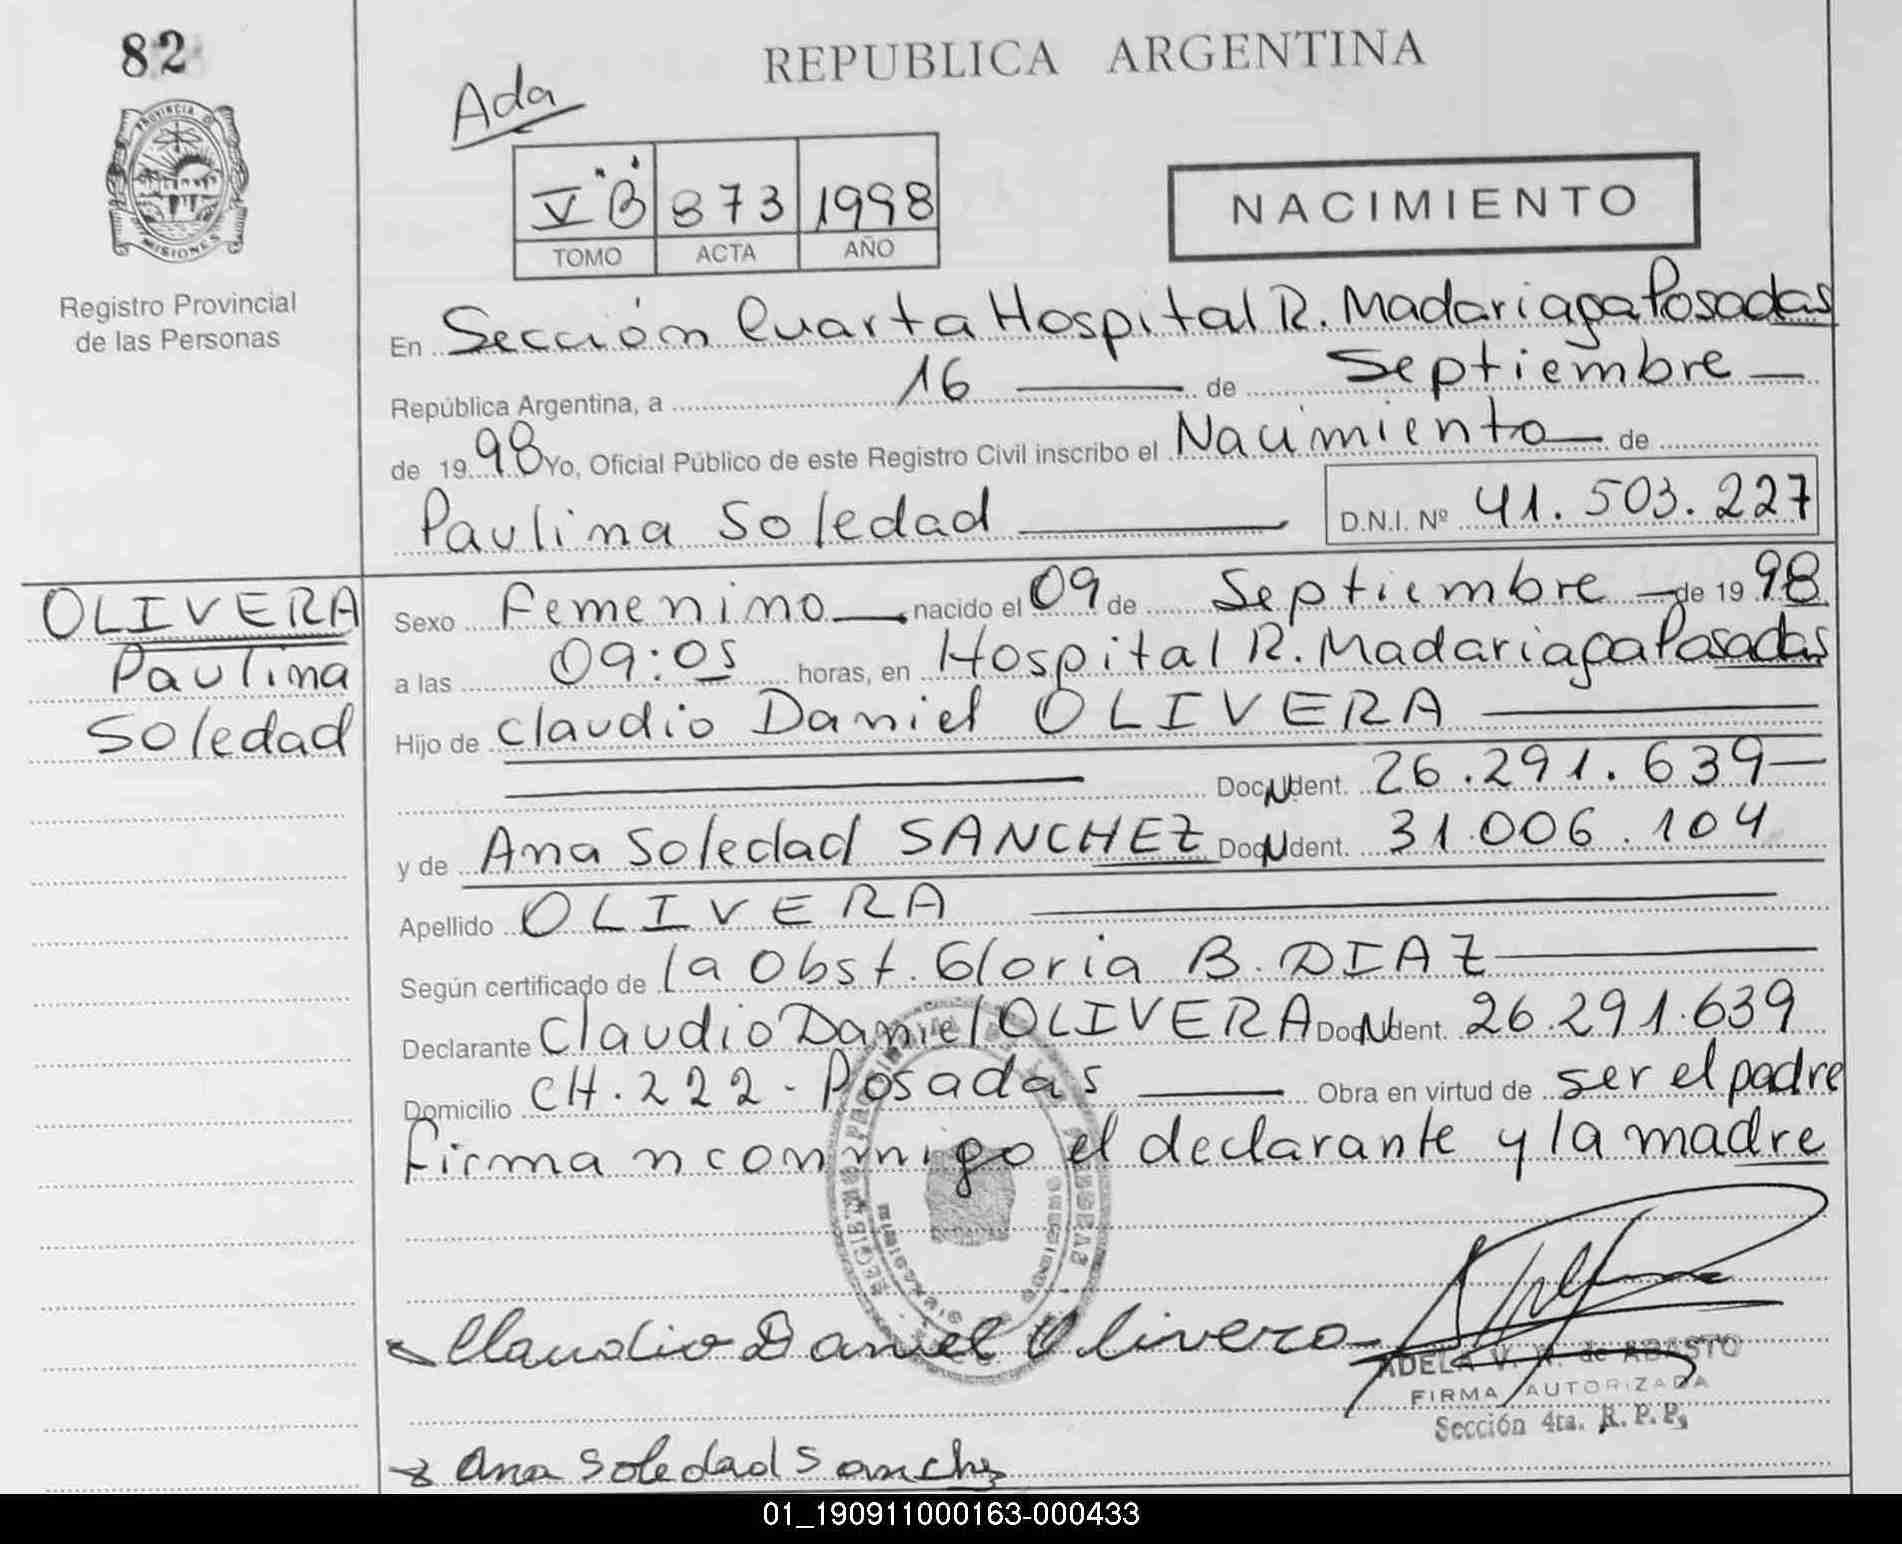 82
REPUBLICA ARGENTINA
Ada
PROVINCIA D
MISIONES
V "B" 873 1998
TOMO ACTA AÑO
NACIMIENTO
Registro Provincial
de las Personas
En Sección Cuarta Hospital R. Madariaga Posadas
República Argentina, a 16 de Septiembre
de 1998 Yo, Oficial Público de este Registro Civil inscribo el Nacimiento de
Paulina Soledad D.N.I. Nº 41.503.227
OLIVERA
Paulina
Soledad
Sexo Femenino nacido el 09 de Septiembre de 1998
a las 09:05 horas, en Hospital R. Madariaga Posadas
Hijo de Claudio Daniel OLIVERA
Doc. N. Ident. 26.291.639
y de Ana Soledad SANCHEZ Doc. N. Ident. 31.006.104
Apellido OLIVERA
Según certificado de la Obst. Gloria B. DIAZ
Declarante Claudio Daniel OLIVERA Doc. N. Ident. 26.291.639
Domicilio CH. 222 - Posadas Obra en virtud de ser el padre
Firma n conmigo el declarante y la madre
Claudio Daniel Olivera
ADELA V. de ABASTO
FIRMA AUTORIZADA
Sección 4ta. R.P.P.
Ana Soledad Sanchez
01_190911000163-000433